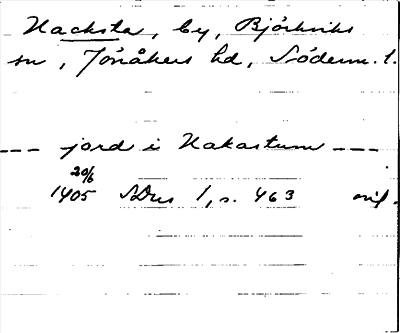 Nacksta, by, Björkviks
sn, Jönåkers hd, Söderm. l.
--- jord i Nakastum ---
20/6
1405 SDns 1, s. 463 avif.